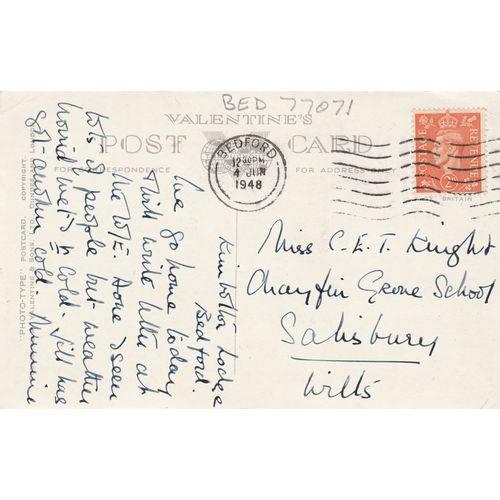 BED 77071
VALENTINE'S
POST CARD
FOR CORRESPONDENCE
FOR ADDRESS ONLY
BEDFORD
12 30 PM
4 JUN
1948
POSTAGE
REVENUE
"PHOTO-TYPE" POSTCARD. COPYRIGHT.
VALENTINE & SONS. LTD. DUNDEE AND LONDON
Lodge
Bedford.
We go home today
& will write letter at
the W/E. Have seen
lots of people but weather
horrid wet & cold. Jill has
got another cold
Miss C.E.T. Knight
Chayfin Grove School
Salisbury
Wilts